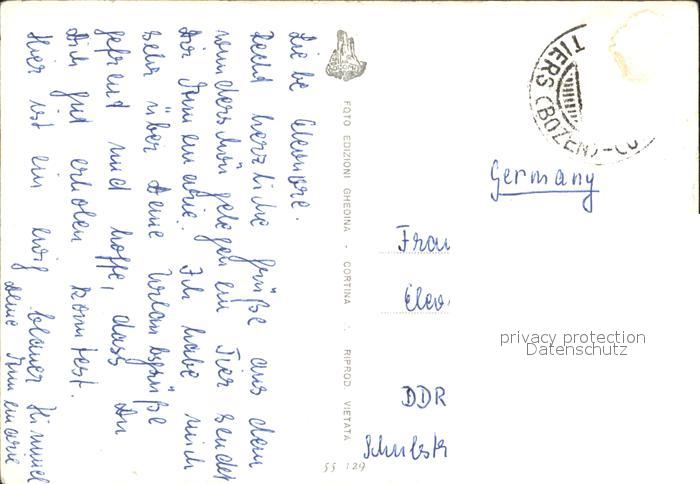 Liebe Eleonore.
Recht herzliche Grüße aus dem
wunderschön gelegenen Tiers sendet
Dir Annemarie. Ich habe mich
sehr über Deine Urlaubsgrüße
gefreut und hoffe, dass Du
Dich gut erholen konntest.
Hier ist ein ewig blauer Himmel
Deine Annemarie
FOTO EDIZIONI GHEDINA - CORTINA - RIPROD. VIETATA
SS 129
TIERS (BOZEN)-CO
Germany
Frau
Eleo
DDR
Schulstr
privacy protection
Datenschutz